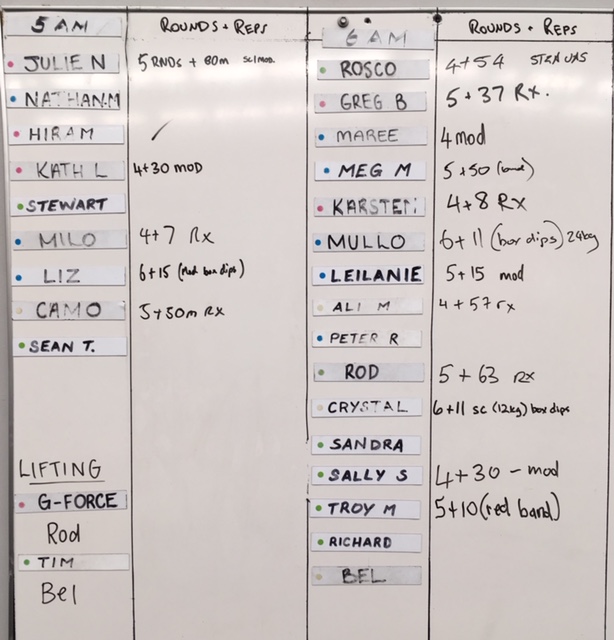 5 AM ROUNDS + REPS
JULIE N 5 RNDS + 80m sc/mod.
NATHAN.M
HIRAM /
KATH L 4+30 MOD
STEWART
MILO 4+7 Rx
LIZ 6+15 (Red box dips)
CAMO 5+50m RX
SEAN T.
LIFTING
G-FORCE
Rod
TIM
Bel
6 AM ROUNDS + REPS
ROSCO 4+54
GREG B 5+37 Rx.
MAREE 4 mod
MEG M 5+50 (band)
KARSTEN 4+8 RX
MULLO 6+11 (box dips) 24kg
LEILANIE 5+15 mod
ALI M 4+57 rx
PETER R
ROD 5+63 rx
CRYSTAL 6+11 sc (12kg) box dips
SANDRA
SALLY S 4+30 - mod
TROY M 5+10 (red band)
RICHARD
BEL